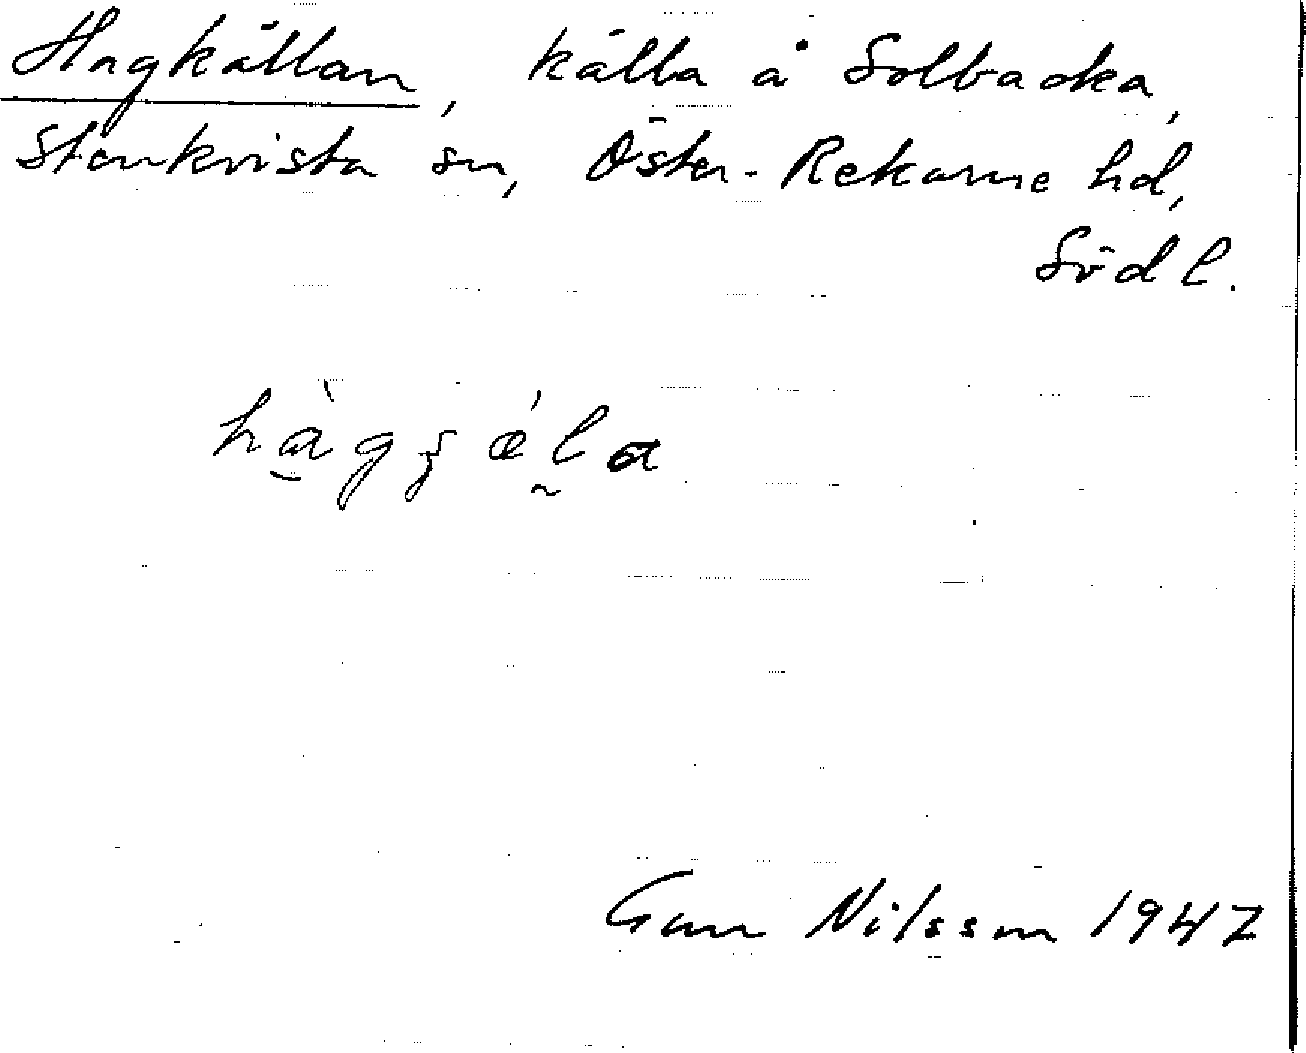 Hagkällan, källa å Solbacka,
Stenkvista sn, Öster-Rekarne hd,
Södl.
Gun Nilsson 1947